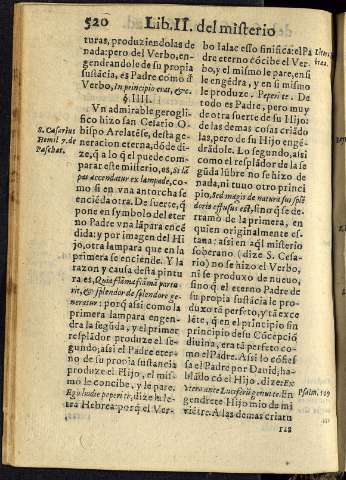 520 Lib. II. del misterio
turas, produziendolas de
nada: pero del Verbo, en-
gendrandole de su propia
sustácia, es Padre como ď
Verbo, In principio erat, &c.
§ IIII.
Vn admirable geroglí-
fico hizo san Cesario O-
bispo Arelatése, desta ge-
neracion eterna, dó de di-
ze, q̃ a lo q̃ el puede com-
parar este misterio, es, Si lā-
pas accendatur ex lampade, co-
mo si en vna antorcha se
enciēda otra. De suerte, q̃
pone en symbolo del eter-
no Padre vna lāpara encē
dida: y por imagen del Hi
jo, otra lampara que en la
primera se enciende. Y la
razon y causa desta pintu
ra es, Quia flāma flāmā paria-
ret, & splendor de splendore ge-
neratur: porq̃ assi como la
primera lampara engen-
dra la segūda, y el primer
resplādor produze el se-
gundo, assi el Padre eter-
no de su propia sustancia
produze el Hijo, el mis-
mo le concibe, y le pare,
Ego hodie peperi te, dize la le-
tra Hebrea: porq̃ el Ver-
S. Cesarius
Homil. 7. de
Paschat.
bo Ialac esso sinifica: el Pa
dre eterno cócibe el Ver-
bo, y el mismo le pare, en si
le engēdra, y en si mismo
le produze. Peperi te. De
todo es Padre, pero muy
de otra suerte de su Hijo:
de las demas cosas criādo
las, pero de su Hijo engé-
drādole. Lo segundo, assi
como el resplādor de la se
gūda lūbre no se hizo de
nada, ni tuuo otro princi
pio, sed magis de natura sui splē
doris effusus est, sino q̃ se de-
rramò de la primera, en
quien originalmente es-
taua: assi en aq̃l misterio
soberano (dize S. Cesa-
rio) no se hizo el Verbo,
ni se produxo de nueuo,
sino q̃ el eterno Padre de
su propia sustācia le pro-
duxo tā perfeto, y tā exce
lēte, q̃ en el principio sin
principio de su Cócepció
diuina, era tā perfeto co-
mo el Padre. Assi lo cófies
sa el Padre por Dauid, ha-
blādo có el Hijo, dize: Ex
vtero ante Luciferū genui te. En
gendrete Hijo mio de mi
viētre. A las demas criatu
ras
Psalm. 109